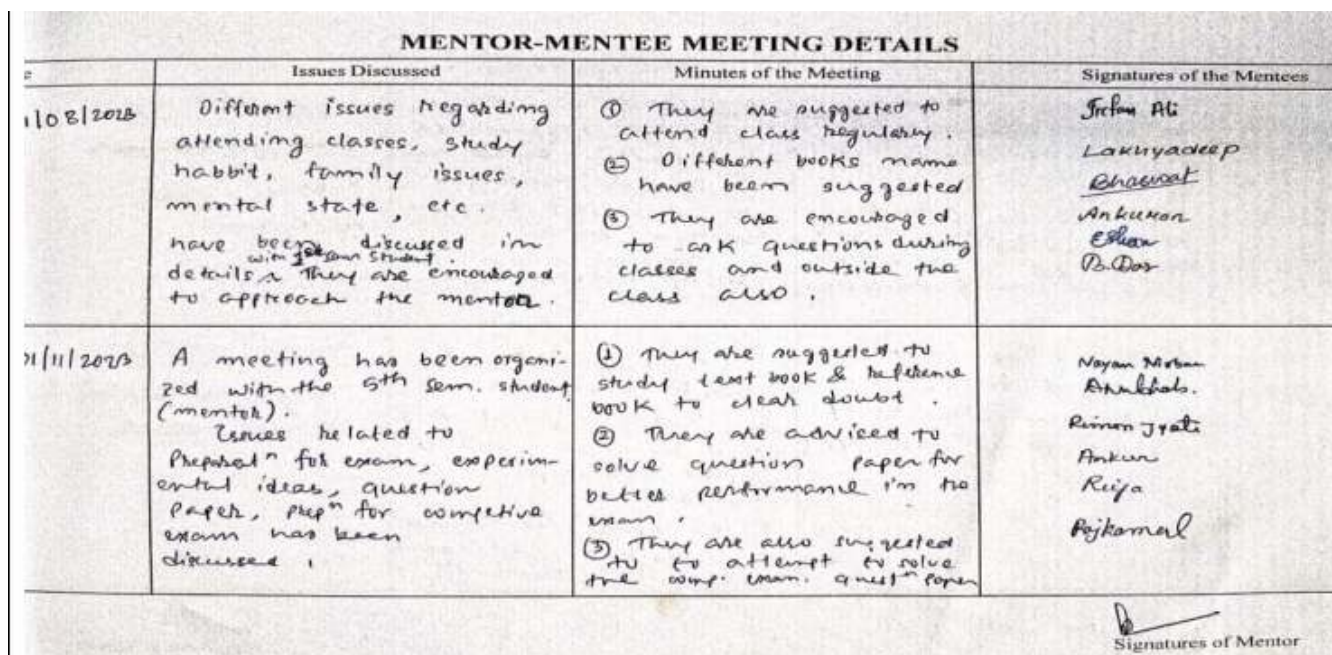 MENTOR-MENTEE MEETING DETAILS
Issues Discussed
Minutes of the Meeting
Signatures of the Mentees
/08/2023
Different issues regarding
attending classes, study
habbit, family issues,
mental state, etc.
have been discussed in
with 1st sem student.
details. They are encouraged
to approach the mentor.
① They are suggested to
attend class regularly.
② Different books name
have been suggested
③ They are encouraged
to ask questions during
classes and outside the
class also.
Irfan Ali
Lakhyadeep
Bhaswat
Ankuran
Eshan
P. Das
01/11/2023
A meeting has been organi-
zed with the 5th sem. student
(mentor).
Issues related to
Preparatn for exam, experim-
ental ideas, question
paper, prepn for competive
exam has been
discussed.
① They are suggested to
study text book & reference
book to clear doubt.
② They are adviced to
solve question paper for
better performance in the
exam.
③ They are also suggested
to to attempt to solve
the comp. exam. questn paper
Nayan
Rimon Jyoti
Ankur
Rajkamal
Signatures of Mentor